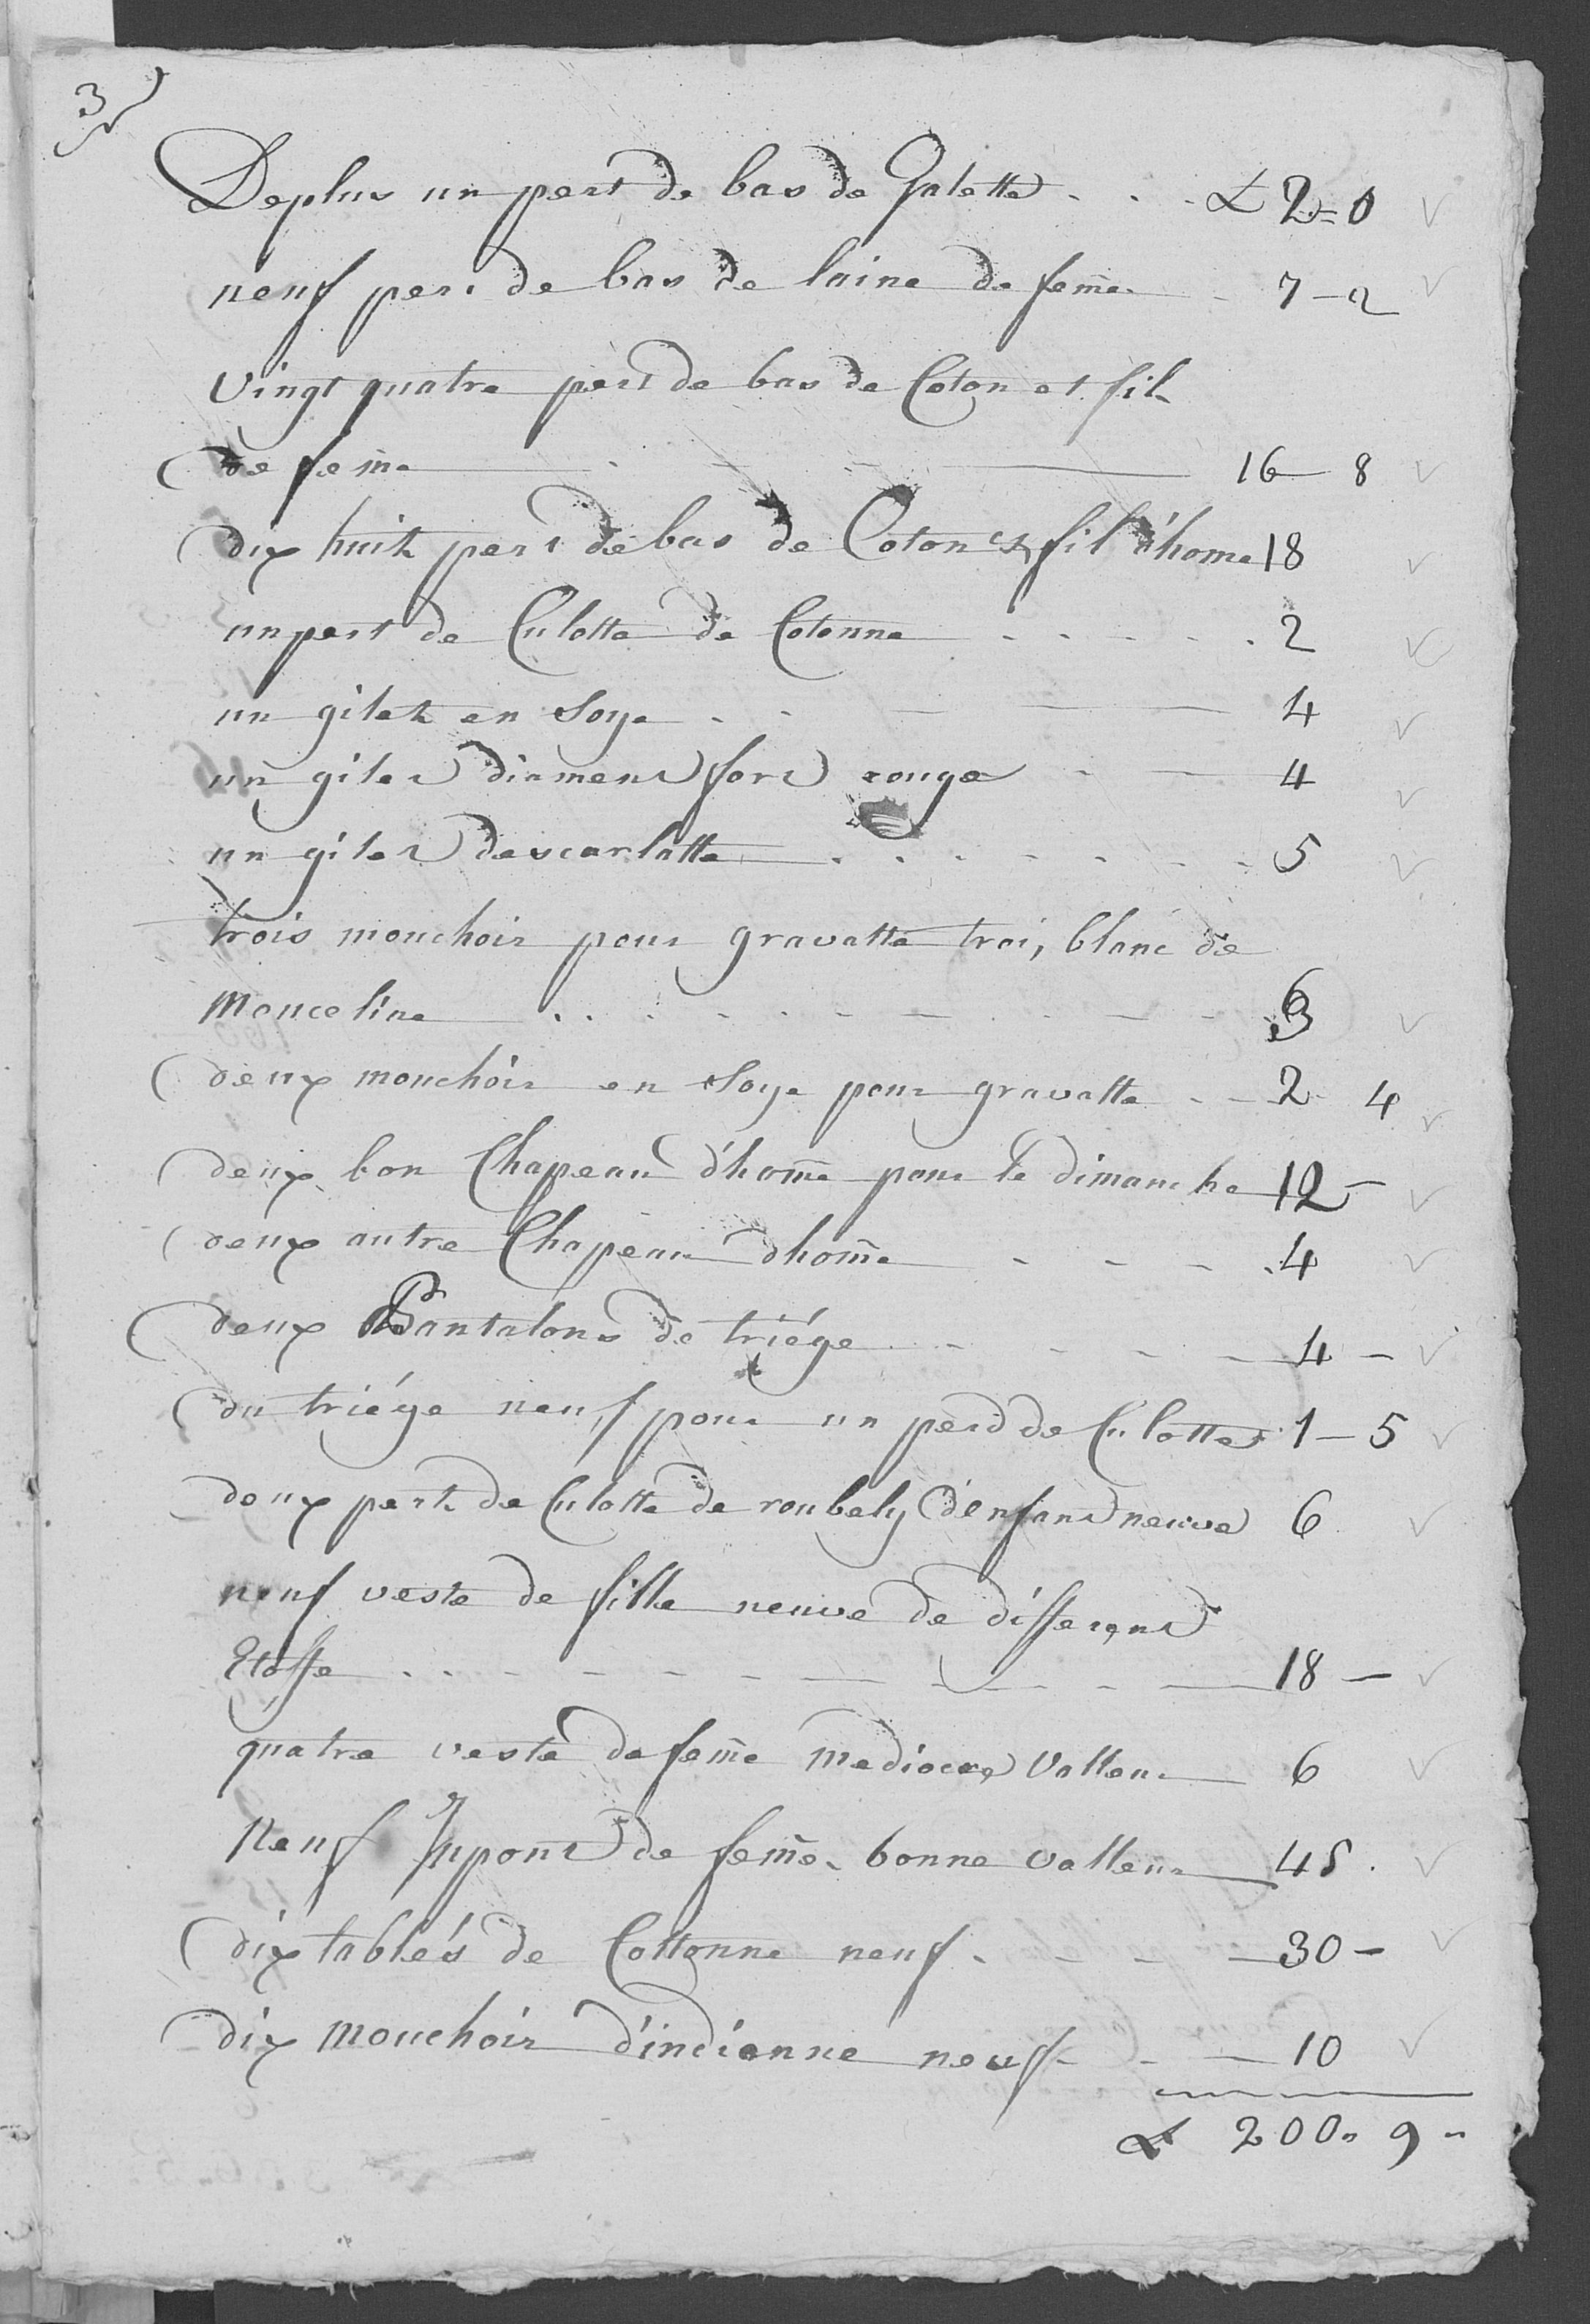 3
Deplus un pert de bas de Galette . . . L 2 = 0
neuf pert de bas de laine de fem̄e - 7 - 2
vingt quatre pert de bas de Coton et fil
de fem̄e 16 - 8
dix huit pert de bas de Coton et fil d'home 18
un pert de Culotte de Cotonne . . . . . 2
un gilet en Soye . . 4
un gilet diament fort rouge - 4
un gilet descarlatte . . . . . . . 5
trois mouchoir pour gravatte troi, blanc de
Mouceline . . . . . . 6
deux mouchoir en Soye pour gravatte . - 2 4
deux bon Chapeau d'hom̄e pour le dimanche 12 -
deux autre Chapeau dhom̄e - - - . 4
deux Pantalons de triége - - - 4 -
du triége neuf pour un perd de Culottes 1 - 5
deux pert de Culotte de roubely d'enfant neuve 6
neuf veste de fille neuve de different
Etoffe . . - - - - 18 -
quatre veste de fem̄e mediocre Valleur 6
Neuf Jupont de fem̄e bonne valleur 45 .
dix tablés de Cottonne neuf - - - 30 -
dix Mouchoir d'indienne neuf - - 10
L 200 " 9 "